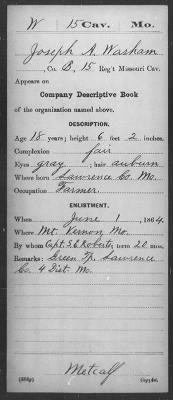 W 15 Cav. Mo.
Joseph A. Washam
, Co. B, 15 Reg't Missouri Cav.
Appears on
Company Descriptive Book
of the organization named above.
DESCRIPTION.
Age 18 years; height 6 feet 2 inches.
Complexion fair
Eyes gray ; hair auburn
Where born Lawrence Co. Mo.
Occupation Farmer.
ENLISTMENT.
When June 1 , 1864.
Where Mt. Vernon Mo.
By whom Capt. S.E. Roberts; term 20 mos.
Remarks: Green Tp. Lawrence
Co. 4 Dist. Mo.
Metcalf
Copyist.